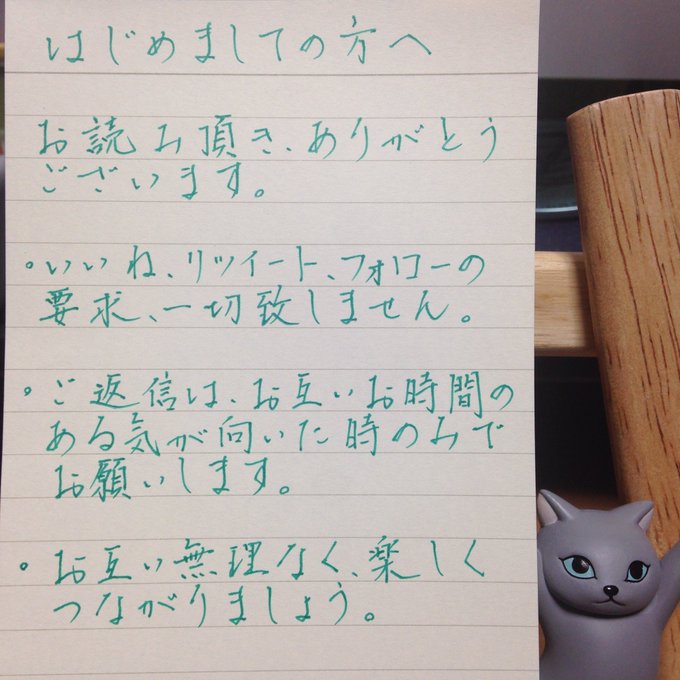 はじめましての方へ
お読み頂き、ありがとう
ございます。
・いいね、リツイート、フォローの
要求、一切致しません。
・ご返信は、お互いお時間の
ある気が向いた時のみで
お願いします。
・お互い無理なく、楽しく
つながりましょう。